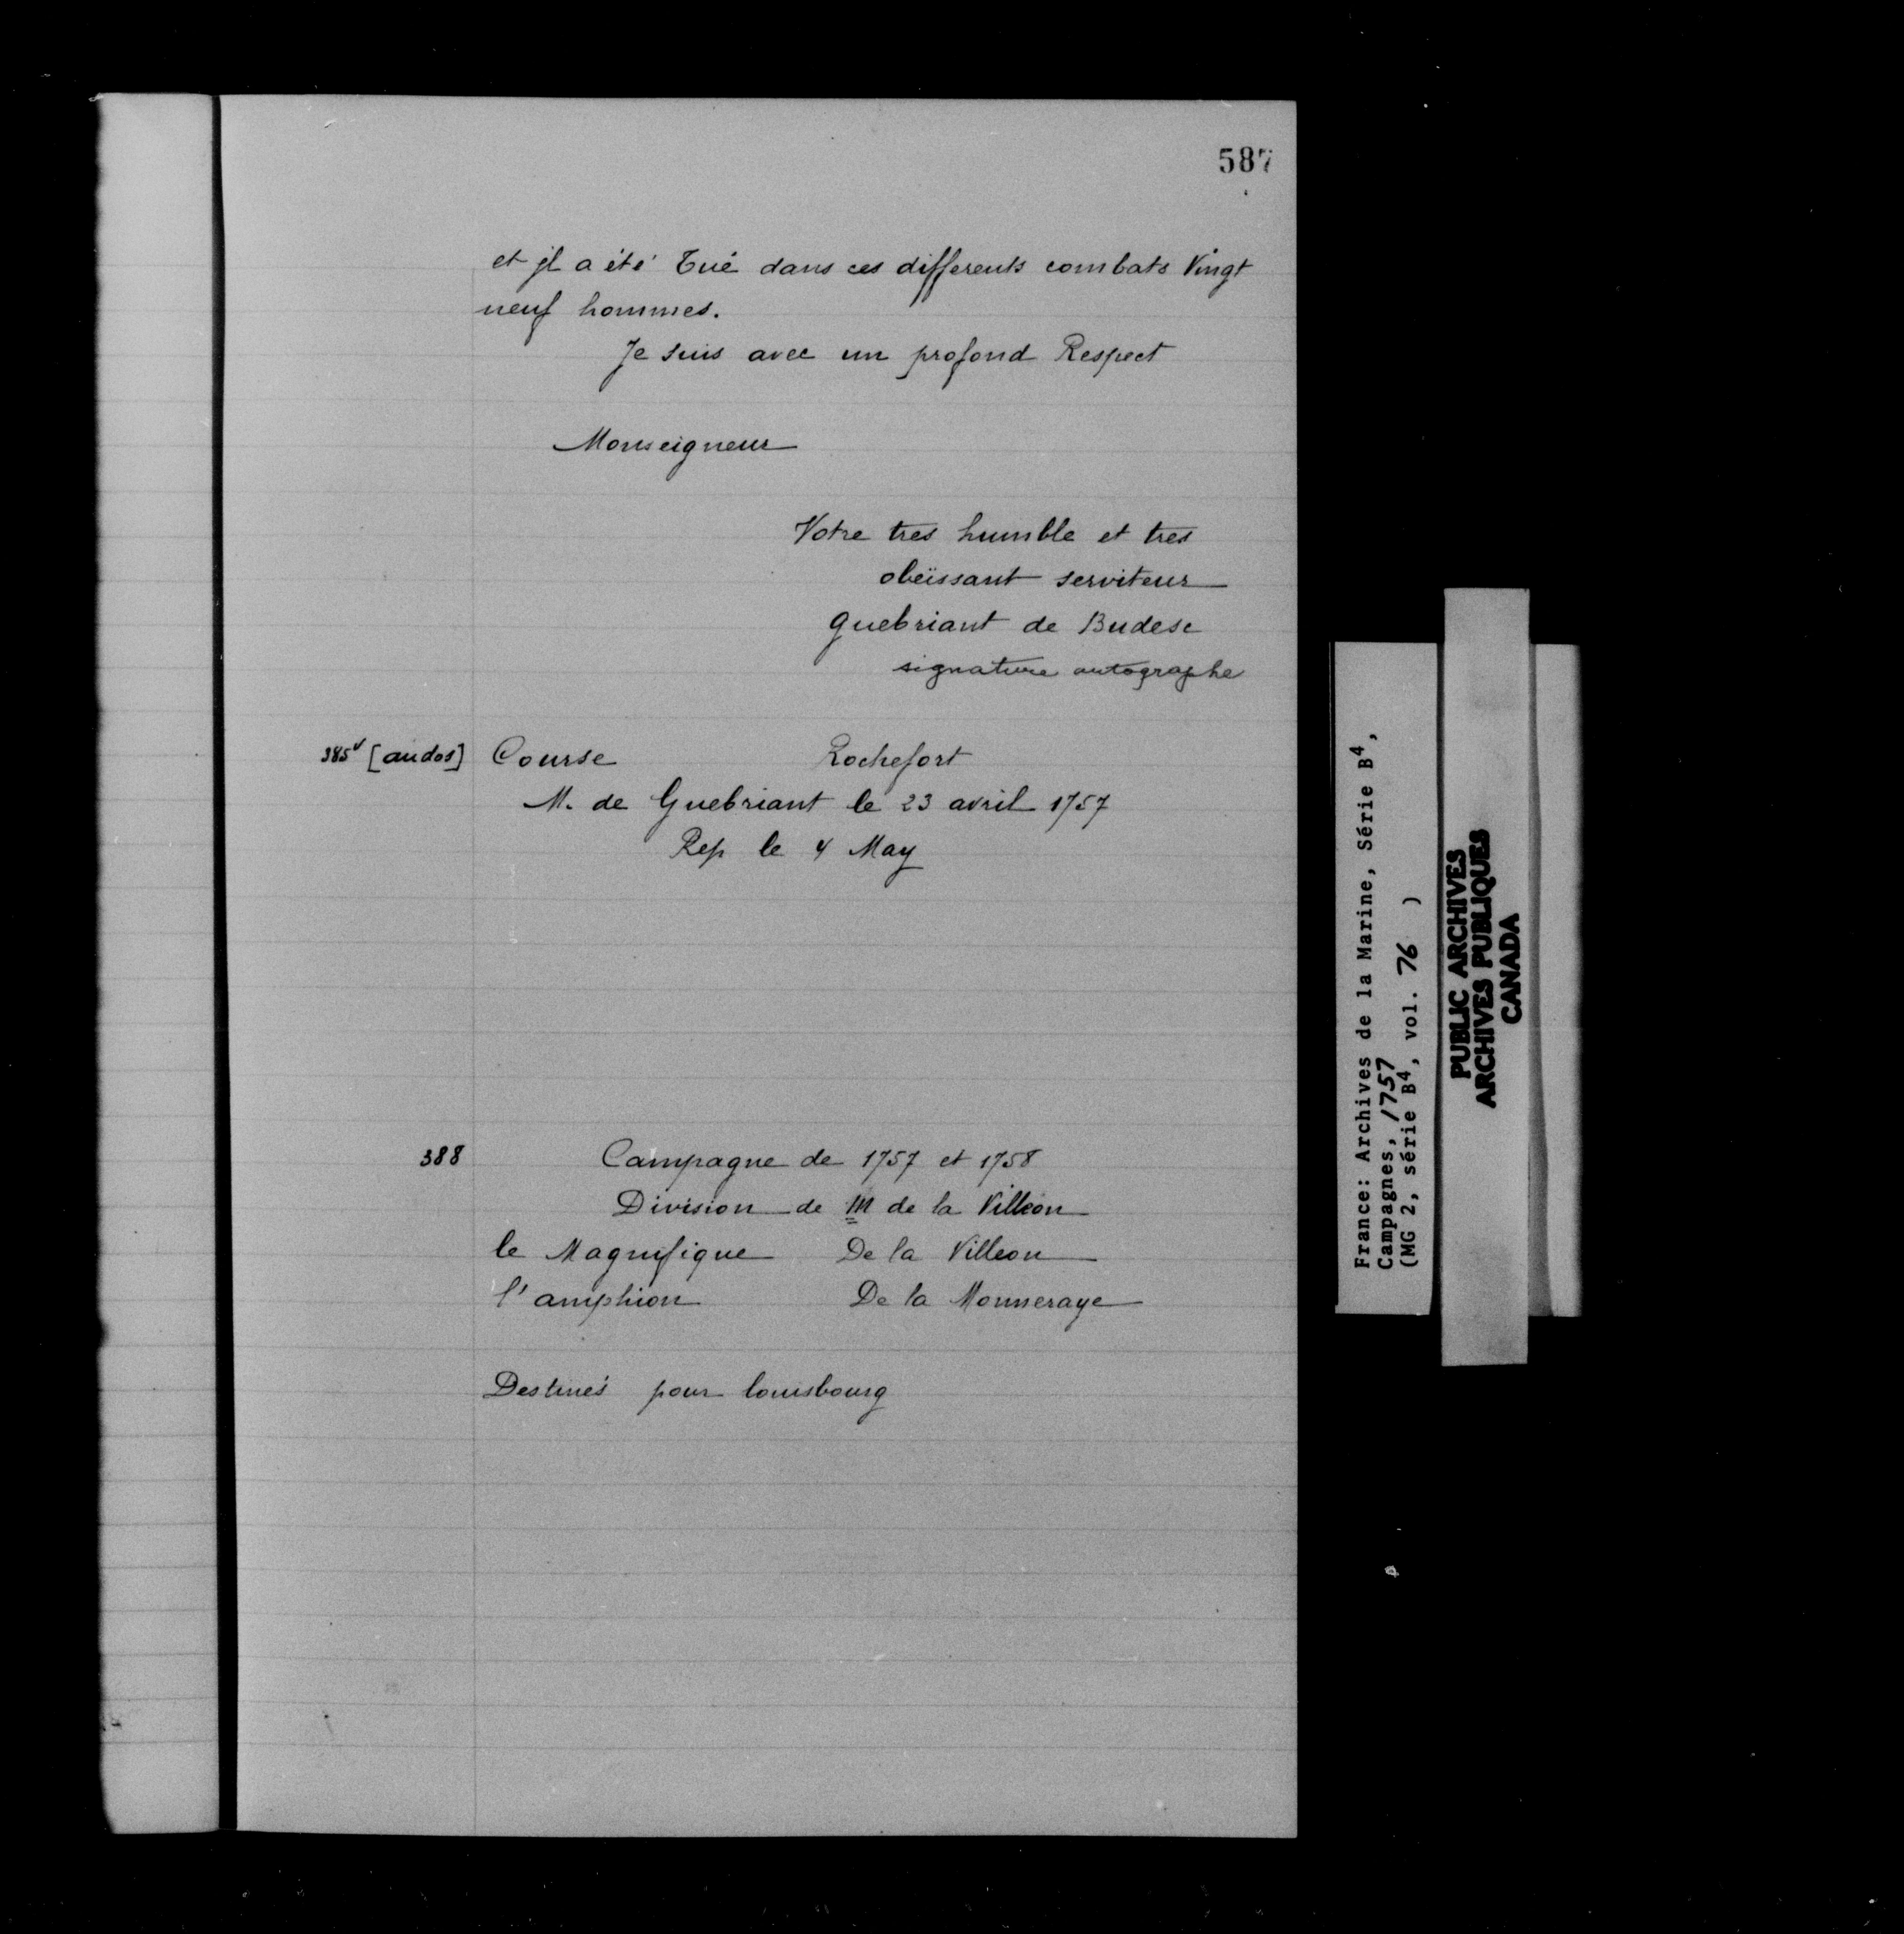 587
et jl a été Tué dans ces differents combats Vingt
neuf hommes.
Je suis avec un profond Respect
Monseigneur
Votre tres humble et tres
obeïssant serviteur
guebriant de Budese
signature autographe
385v [au dos] Course Rochefort
M. de Guebriant le 23 avril 1757
Rep le 4 May
388 Campagne de 1757 et 1758
Division de M de la Villeon
le Magnifique De la Villeon
l'amphion De la Monneraye
Destinés pour louisbourg
France: Archives de la Marine, Série B4,
Campagnes, 1757
(MG 2, série B4, vol. 76 )
PUBLIC ARCHIVES
ARCHIVES PUBLIQUES
CANADA